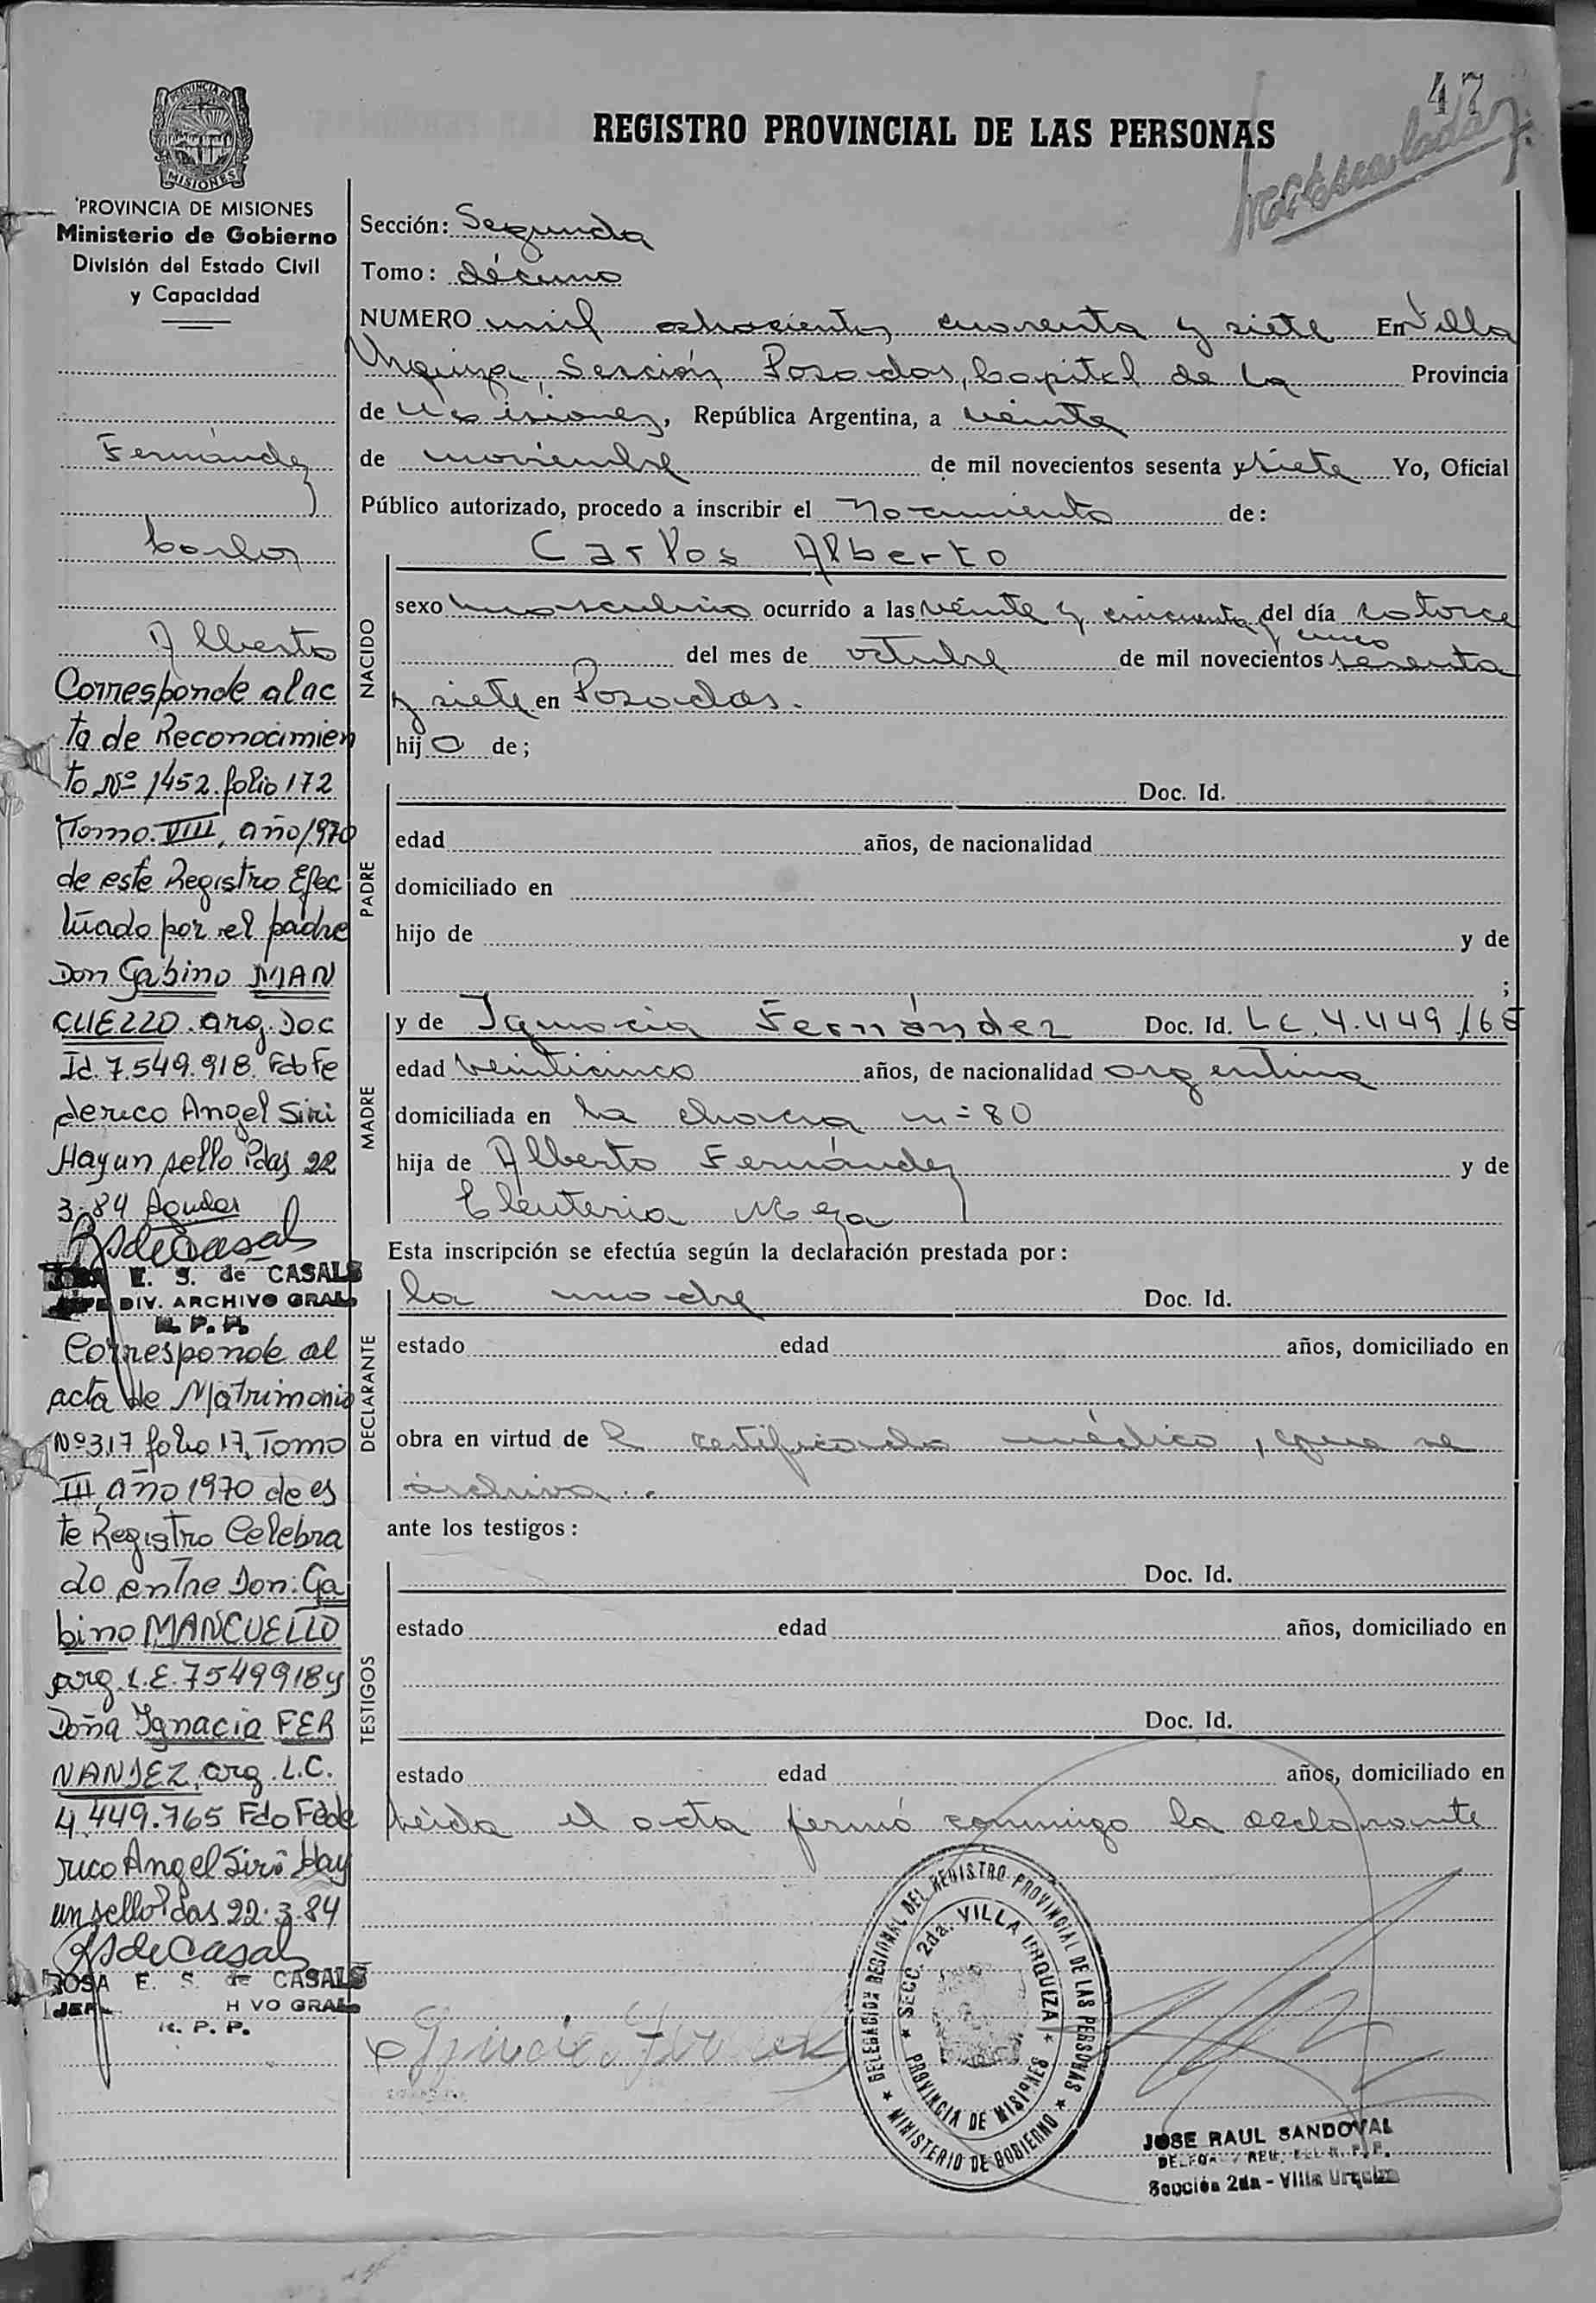 47
REGISTRO PROVINCIAL DE LAS PERSONAS
PROVINCIA DE MISIONES
MISIONES
PROVINCIA DE MISIONES
Ministerio de Gobierno
División del Estado Civil
y Capacidad
Fernández
Carlos
Alberto
Corresponde al ac
ta de Reconocimien
to Nº 1452 folio 172
Tomo VIII, año 1970
de este Registro Efec
tuado por el padre
Don Gabino MAN
CUELLO. arg. Doc
Id. 7.549.918 Fdo Fe
derico Angel Siri
Hay un sello Pdas 22
3-84
RS de Casals
E. S. de CASALS
JEFE DIV. ARCHIVO GRAL
R. P. P.
Corresponde al
acta de Matrimonio
Nº 317 folio 17, Tomo
III, año 1970 de es
te Registro Celebra
do entre Don: Ga
bino MANCUELLO
arg. L.E. 7549918 y
Doña Ignacia FER
NANDEZ, arg. L.C.
4.449.765 Fdo Fede
rico Angel Siri Hay
un sello Pdas 22.3.84
RS de Casals
ROSA E. S. de CASALS
R. P. P.
Sección: Segunda
Tomo: décimo
NUMERO mil ochocientos cuarenta y siete En Villa
Urquiza, Sección Posadas, Capital de la Provincia
de Misiones, República Argentina, a veinte
de noviembre de mil novecientos sesenta y siete Yo, Oficial
Público autorizado, procedo a inscribir el Nacimiento de:
Carlos Alberto
NACIDO
sexo masculino ocurrido a las veinte y cincuenta y cinco del día catorce
del mes de octubre de mil novecientos sesenta
y siete en Posadas.
hij o de;
PADRE
Doc. Id.
edad años, de nacionalidad
domiciliado en
hijo de y de
;
MADRE
y de Ignacia Fernández Doc. Id. LC. 4.449
edad veinticinco años, de nacionalidad argentina
domiciliada en la chacra nº 80
hija de Alberto Fernández y de
Eleuteria Meza
Esta inscripción se efectúa según la declaración prestada por:
DECLARANTE
la madre Doc. Id.
estado edad años, domiciliado en
obra en virtud de l certificado médico, que se
archiva.
ante los testigos:
TESTIGOS
Doc. Id.
estado edad años, domiciliado en
Doc. Id.
estado edad años, domiciliado en
Leída el acta firmó conmigo la declarante
DELEGACION REGIONAL DEL REGISTRO PROVINCIAL DE LAS PERSONAS
SECC. 2da. VILLA URQUIZA
PROVINCIA DE MISIONES
MINISTERIO DE GOBIERNO
JOSE RAUL SANDOVAL
Sección 2da - Villa Urquiza